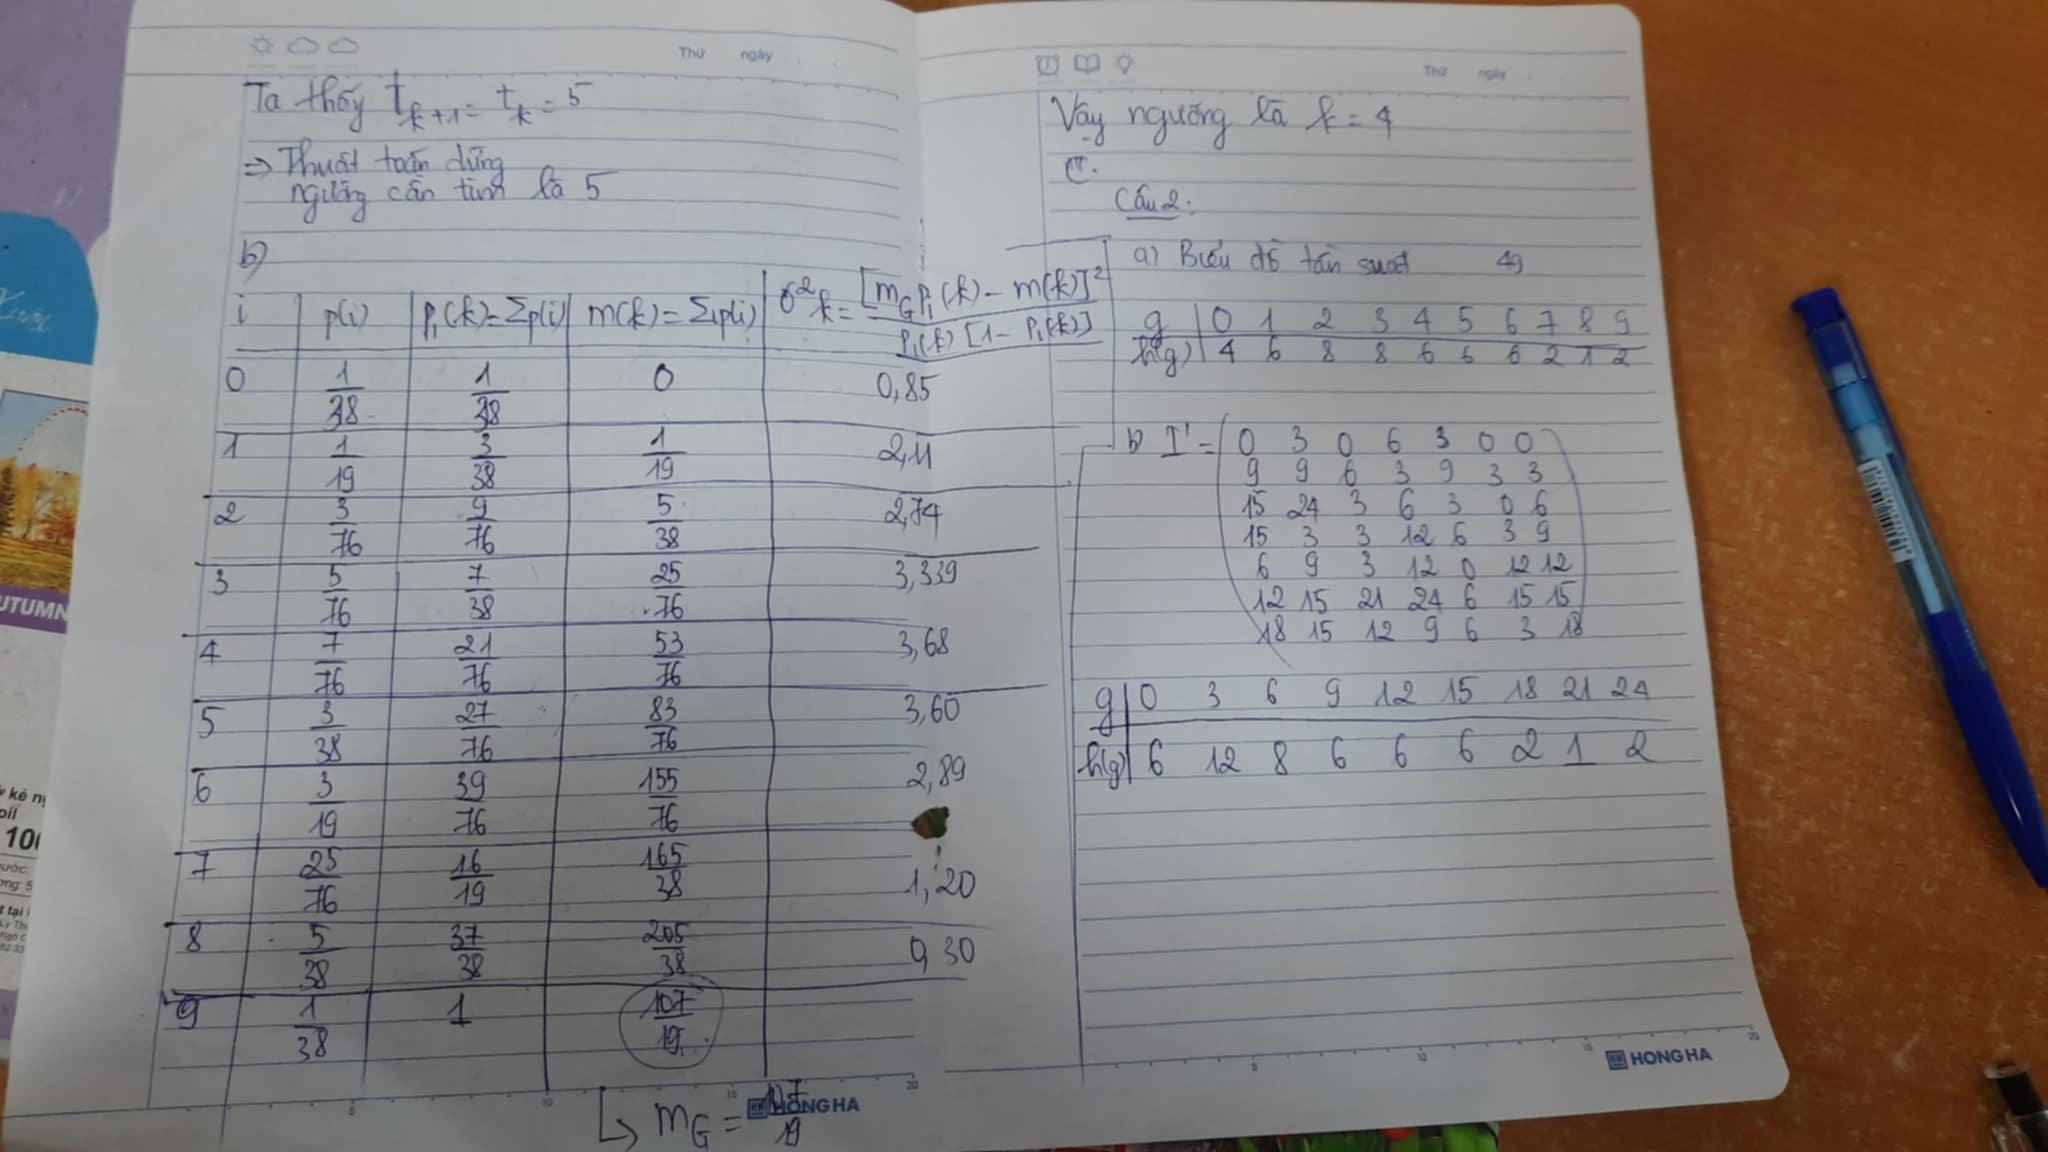 Thứ ngày
Ta thấy t_{k+1} = t_k = 5
⇒ Thuật toán dừng
ngưỡng cần tìm là 5
b)
i | p(i) | P₁(k) = Σp(i) | m(k) = Σip(i) | σ²k = [m_G P₁(k) - m(k)]² / P₁(k) [1 - P₁(k)]
0 | 1/38 | 1/38 | 0 | 0,85
1 | 1/19 | 3/38 | 1/19 | 2,11
2 | 3/76 | 9/76 | 5/38 | 2,74
3 | 5/76 | 7/38 | 25/76 | 3,339
4 | 7/76 | 21/76 | 53/76 | 3,68
5 | 3/38 | 27/76 | 83/76 | 3,60
6 | 3/19 | 39/76 | 155/76 | 2,89
7 | 25/76 | 16/19 | 165/38 | 1,20
8 | 5/38 | 37/38 | 205/38 | 0,30
9 | 1/38 | 1 | 107/19
↳ m_G = 107/19
HONG HA
Thứ ngày
Vậy ngưỡng là k = 4
Câu 2.
a) Biểu đồ tần suất 49
g | 0 1 2 3 4 5 6 7 8 9
h(g) | 4 6 8 8 6 6 6 2 1 2
b) I' = 0 3 0 6 3 0 0
9 9 6 3 9 3 3
15 24 3 6 3 0 6
15 3 3 12 6 3 9
6 9 3 12 0 12 12
12 15 21 24 6 15 15
18 15 12 9 6 3 18
g | 0 3 6 9 12 15 18 21 24
h(g) | 6 12 8 6 6 6 2 1 2
HONG HA
UTUMN